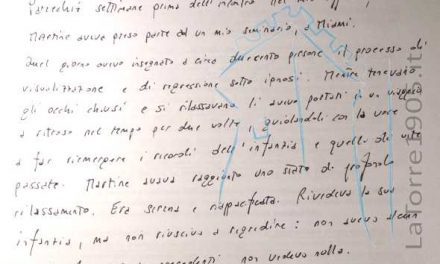 Parecchie settimane prima dell'incontro nel mio
Martine aveva preso parte ad un mio seminario, a Miami.
Quel giorno avevo insegnato a circa duecento persone il processo di
visualizzazione e di regressione sotto ipnosi. Mentre tenevano
gli occhi chiusi e si rilassavano li avevo portati in un viaggio
a ritroso nel tempo per due volte, guidandoli con la voce
a far riemergere i ricordi dell'infanzia e quelli di vite
passate. Martine aveva raggiunto uno stato di profondo
rilassamento. Era serena e riappacificata. Rivedeva la sua
infanzia, ma non riusciva a regredire: non aveva alcun
precedenti: non vedeva nulla.
LaTorre1905.it